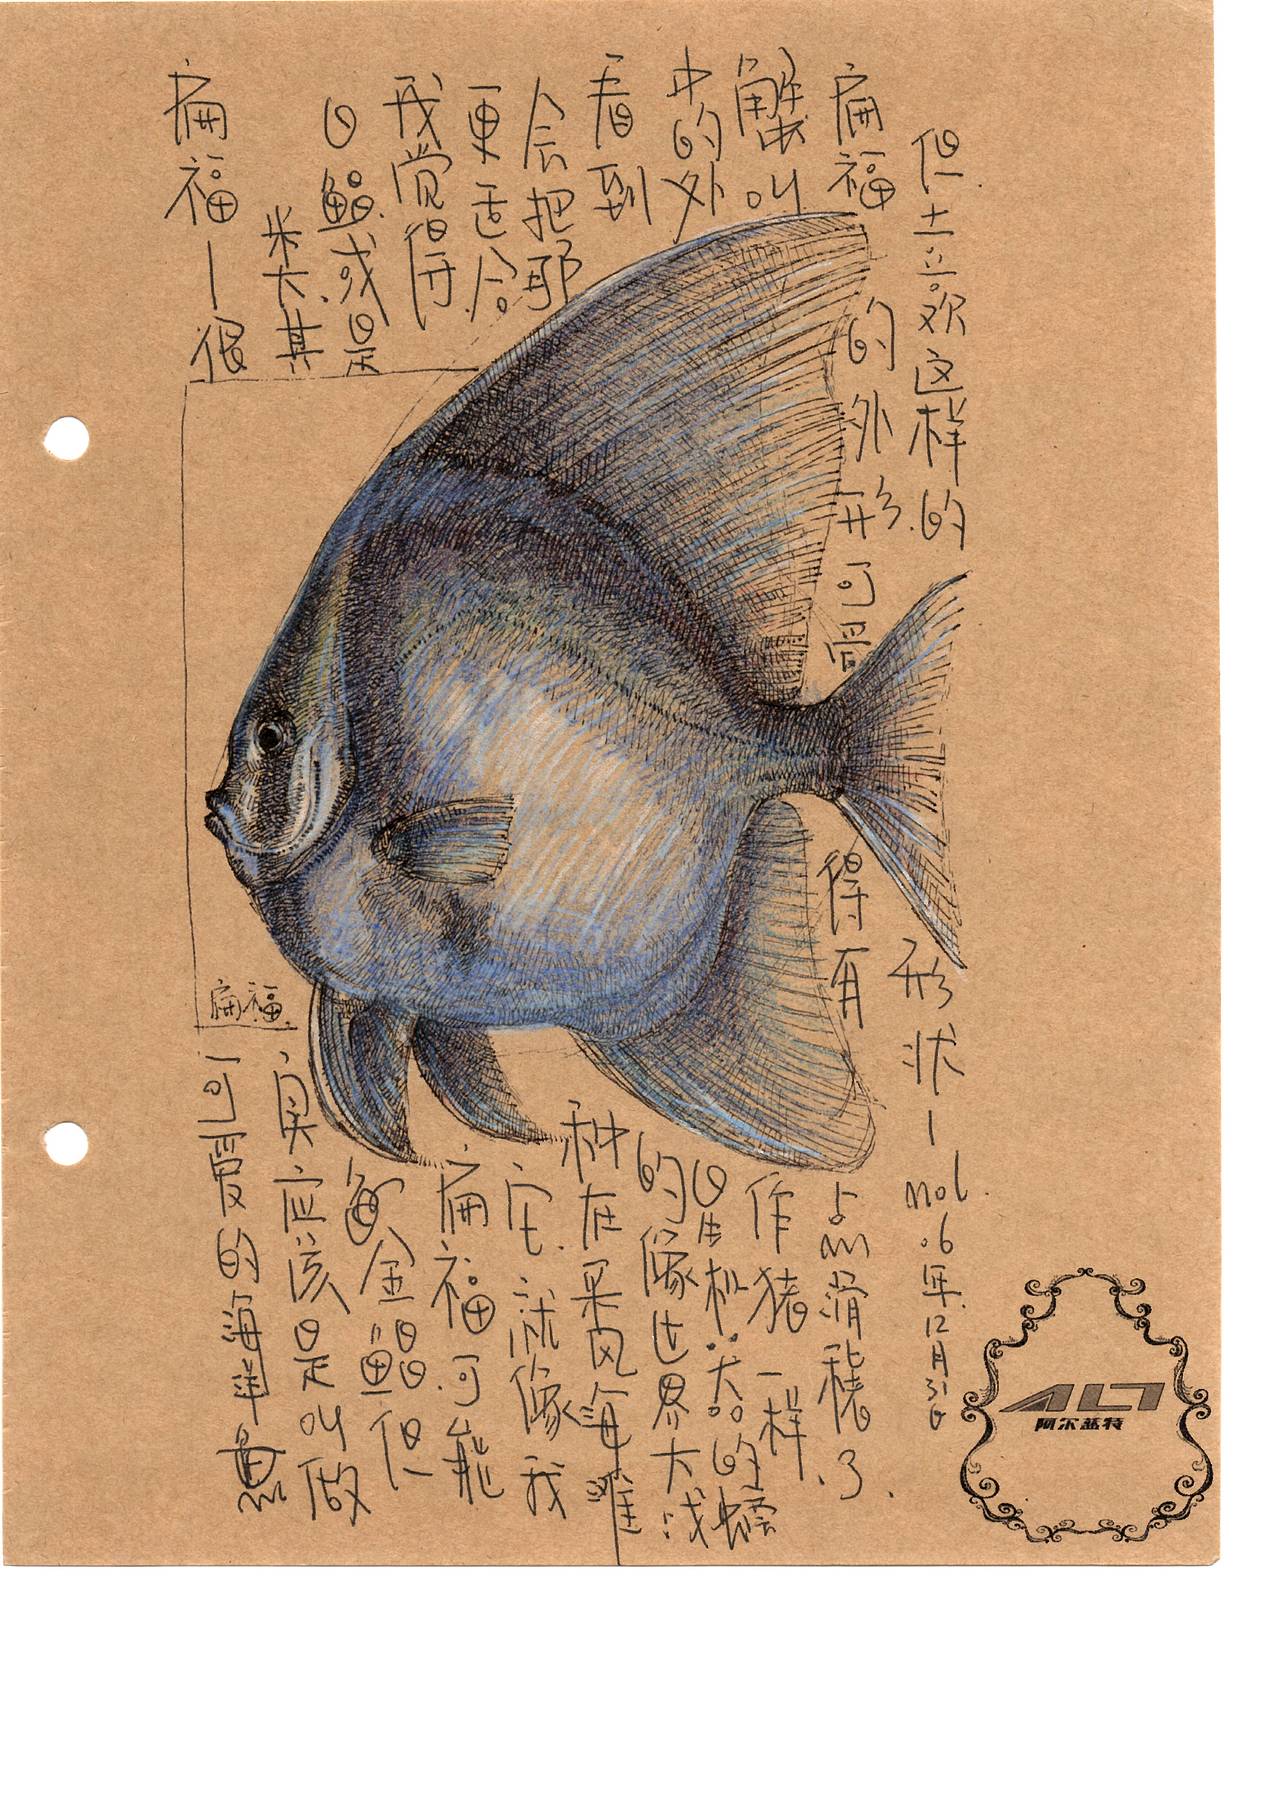 扁福—很可爱的海洋鱼
类.其实应该是叫做
白鲳或是金鲳鱼.但
我觉得扁福可能
更适合它.就像我
会把那种在采风海滩
看到的像世界大战
中的外星机器的螃
蟹叫作猪一样.
扁福的外形可爱得有点滑稽了.
但喜欢这样的形状— nol .6年.12月31日
扁福.